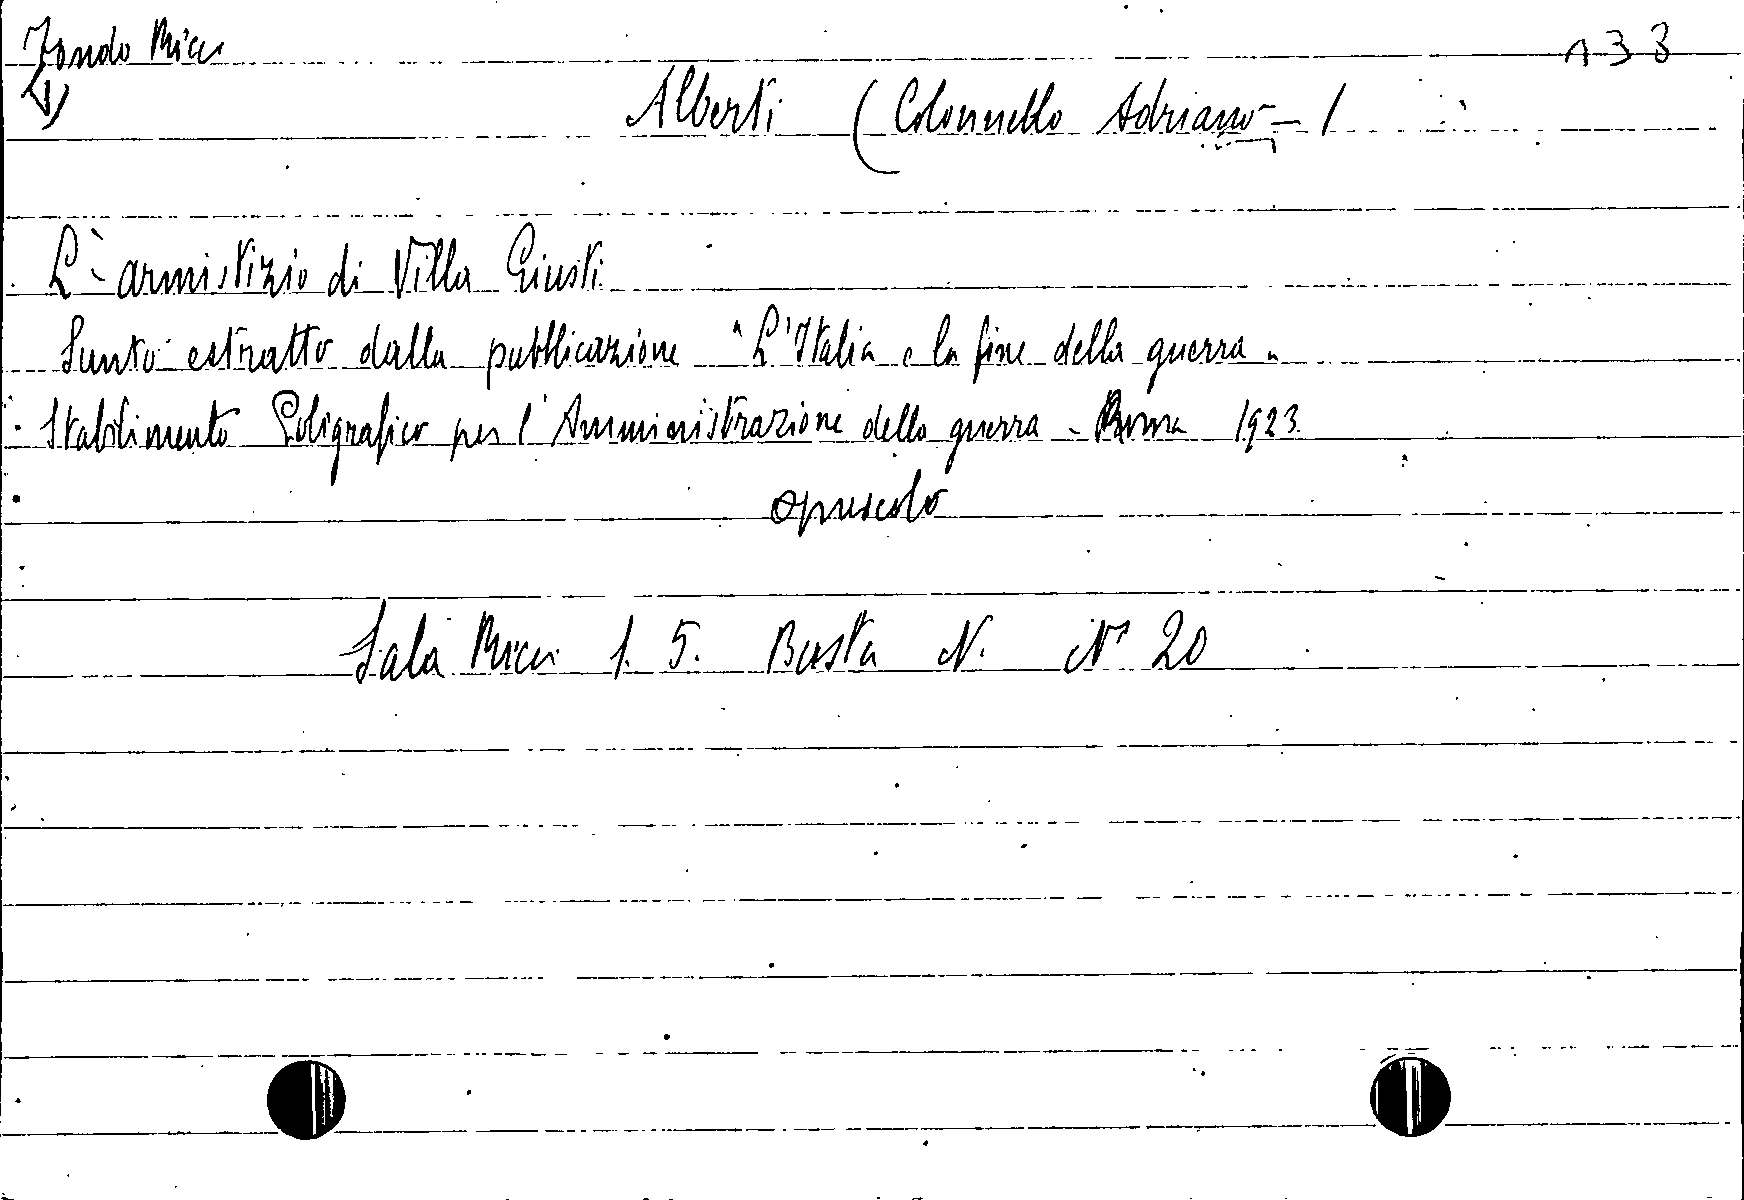 Fondo Ricci
133
Alberti (Colonnello Adriano - /
L'armistizio di Villa Giusti
Sunto estratto dalla pubblicazione "L'Italia e la fine della guerra"
Stabilimento Poligrafico per l'Amministrazione della guerra - Roma 1923
opuscolo
Sala Ricci S. 5. Busta N. N° 20